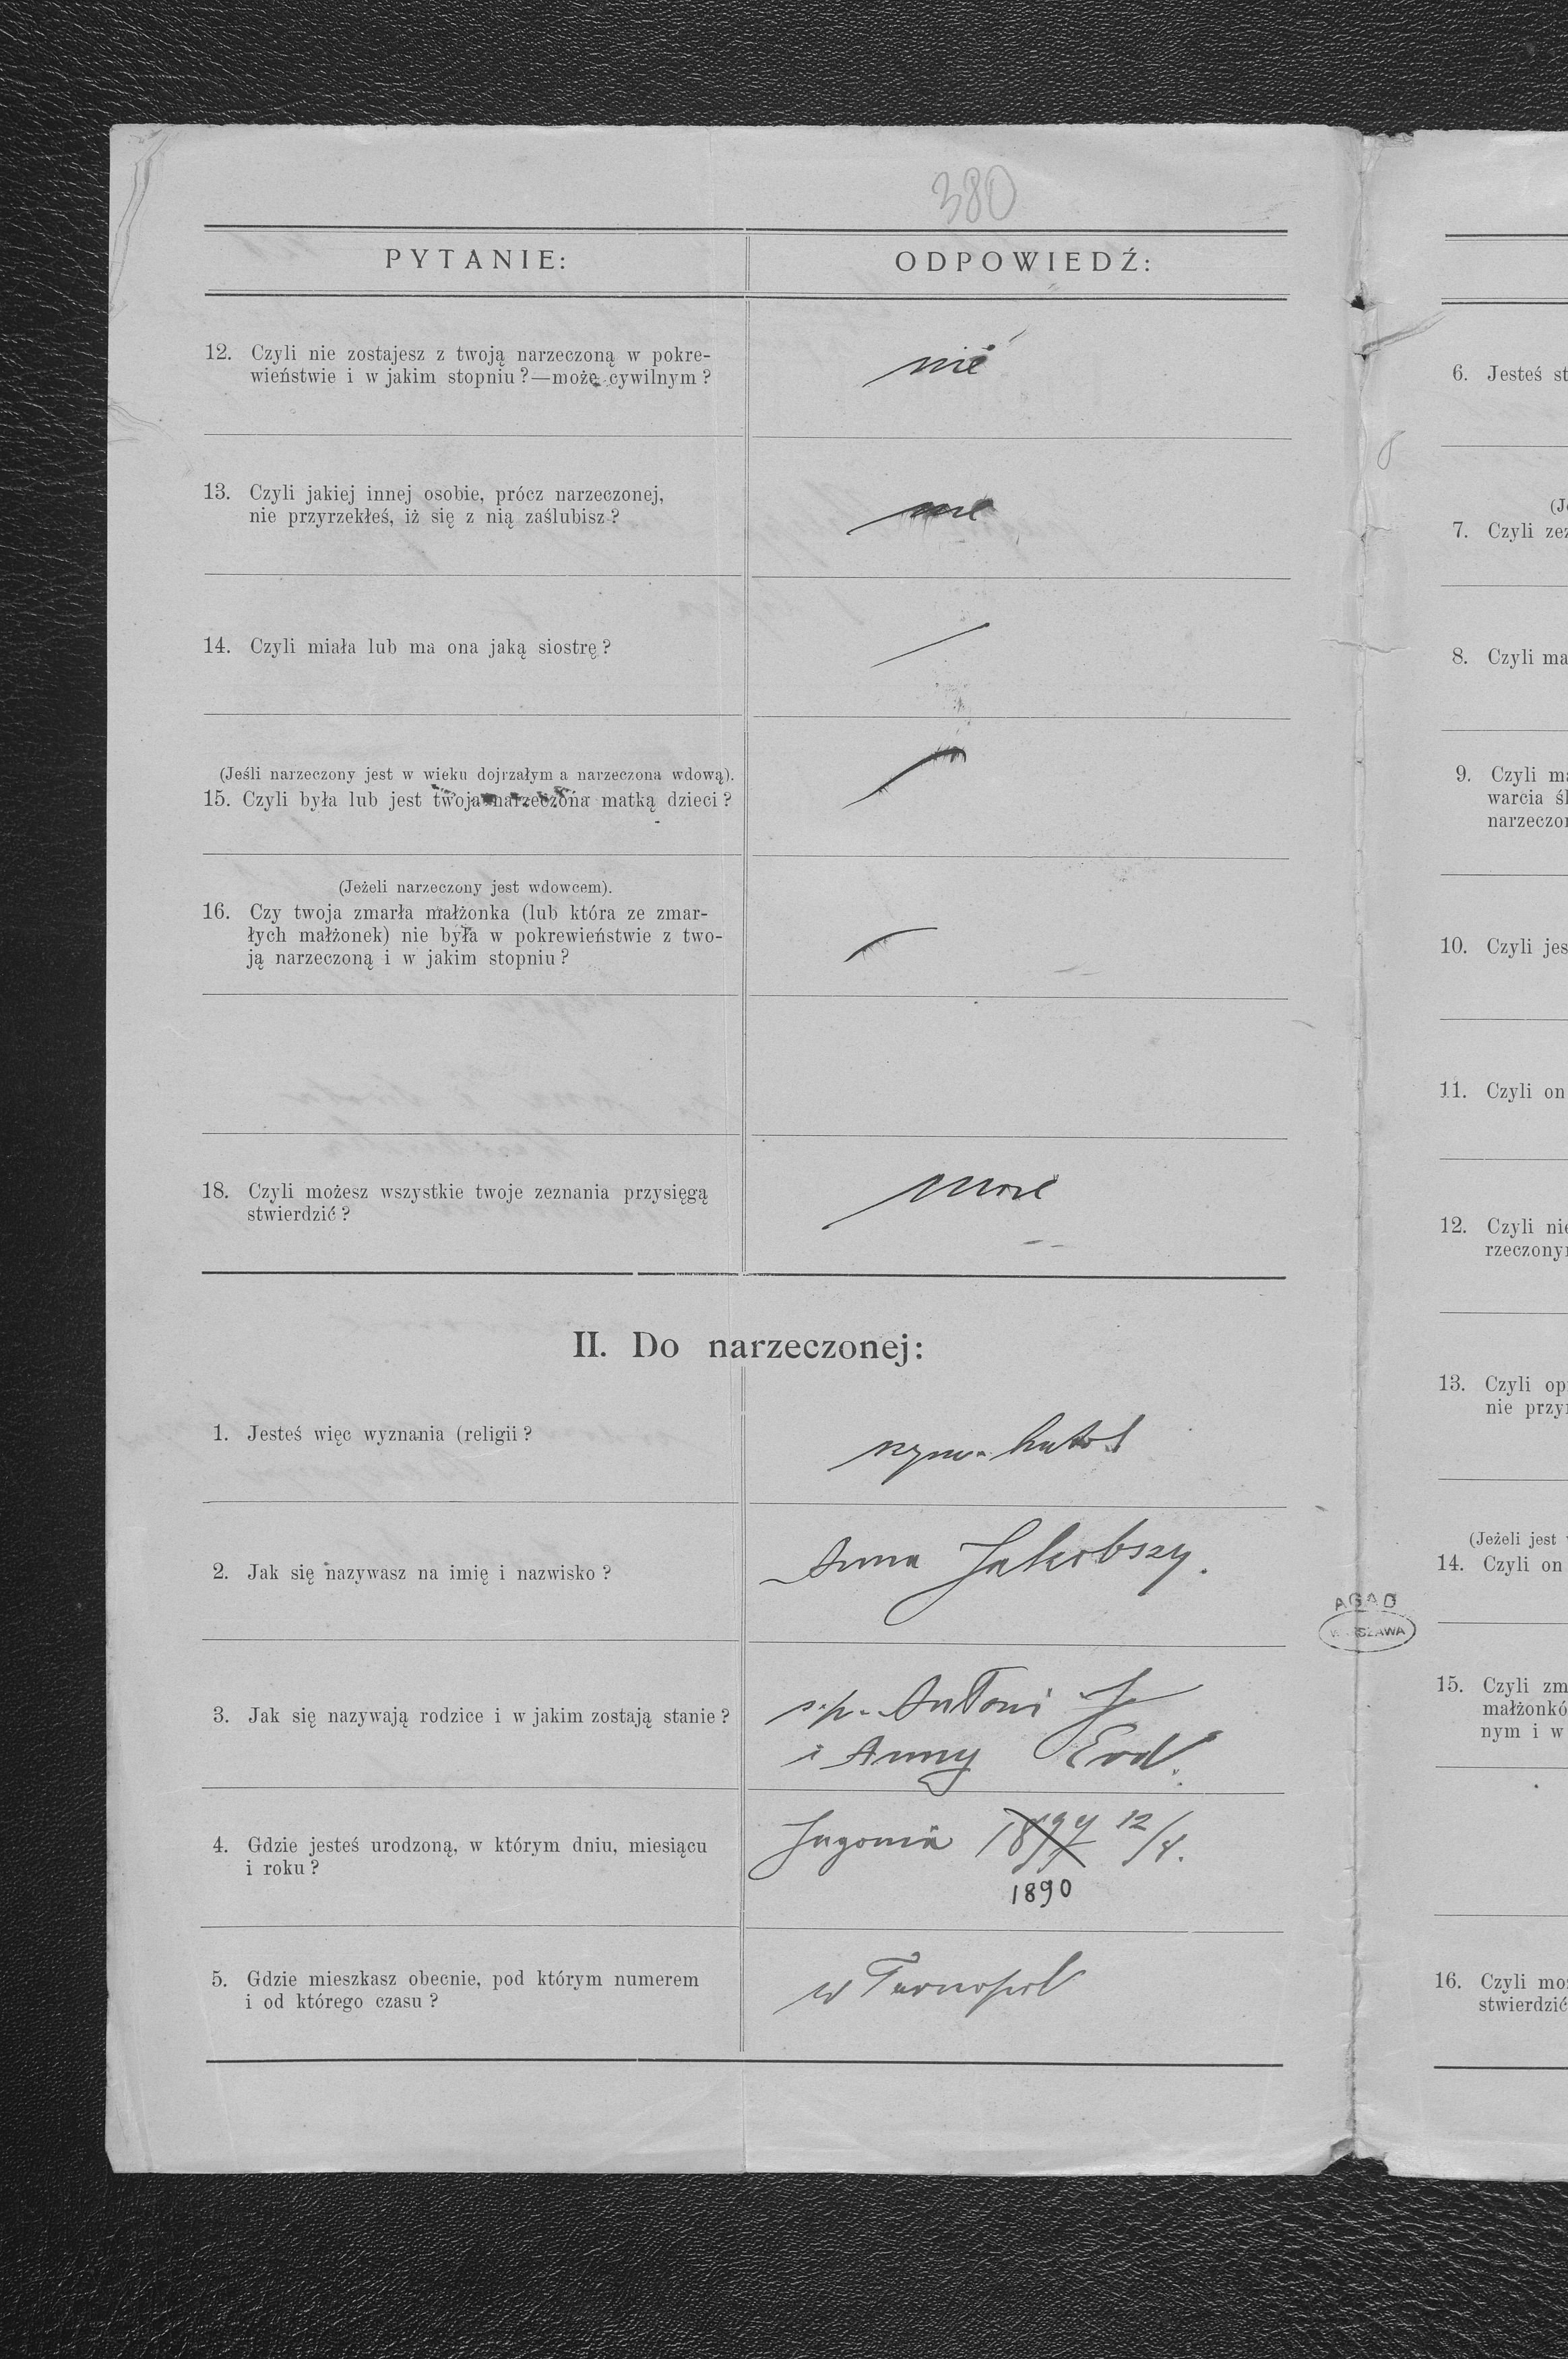 380
PYTANIE:
ODPOWIEDŹ:
12. Czyli nie zostajesz z twoją narzeczoną w pokre-
wieństwie i w jakim stopniu?—może cywilnym?
nie
13. Czyli jakiej innej osobie, prócz narzeczonej,
nie przyrzekłeś, iż się z nią zaślubisz?
nie
14. Czyli miała lub ma ona jaką siostrę?
(Jeśli narzeczony jest w wieku dojrzałym a narzeczona wdową).
15. Czyli była lub jest twoja narzeczona matką dzieci?
(Jeżeli narzeczony jest wdowcem).
16. Czy twoja zmarła małżonka (lub która ze zmar-
łych małżonek) nie była w pokrewieństwie z two-
ją narzeczoną i w jakim stopniu?
18. Czyli możesz wszystkie twoje zeznania przysięgą
stwierdzić?
II. Do narzeczonej:
1. Jesteś więc wyznania (religii?
rzym. katol
2. Jak się nazywasz na imię i nazwisko?
Anna Jakobszy.
3. Jak się nazywają rodzice i w jakim zostają stanie?
ś.p. Antoni J
i Anny
4. Gdzie jesteś urodzoną, w którym dniu, miesiącu
i roku?
12/4.
1890
5. Gdzie mieszkasz obecnie, pod którym numerem
i od którego czasu?
w Tarnopol
AGAD
WARSZAWA
6. Jesteś st
(J
7. Czyli ze
8. Czyli ma
9. Czyli m
warcia śl
narzeczo
10. Czyli jes
11. Czyli on
12. Czyli nie
rzeczony
13. Czyli op
nie przy
(Jeżeli jest
14. Czyli on
15. Czyli zm
małżonkó
nym i w
16. Czyli mo
stwierdzić